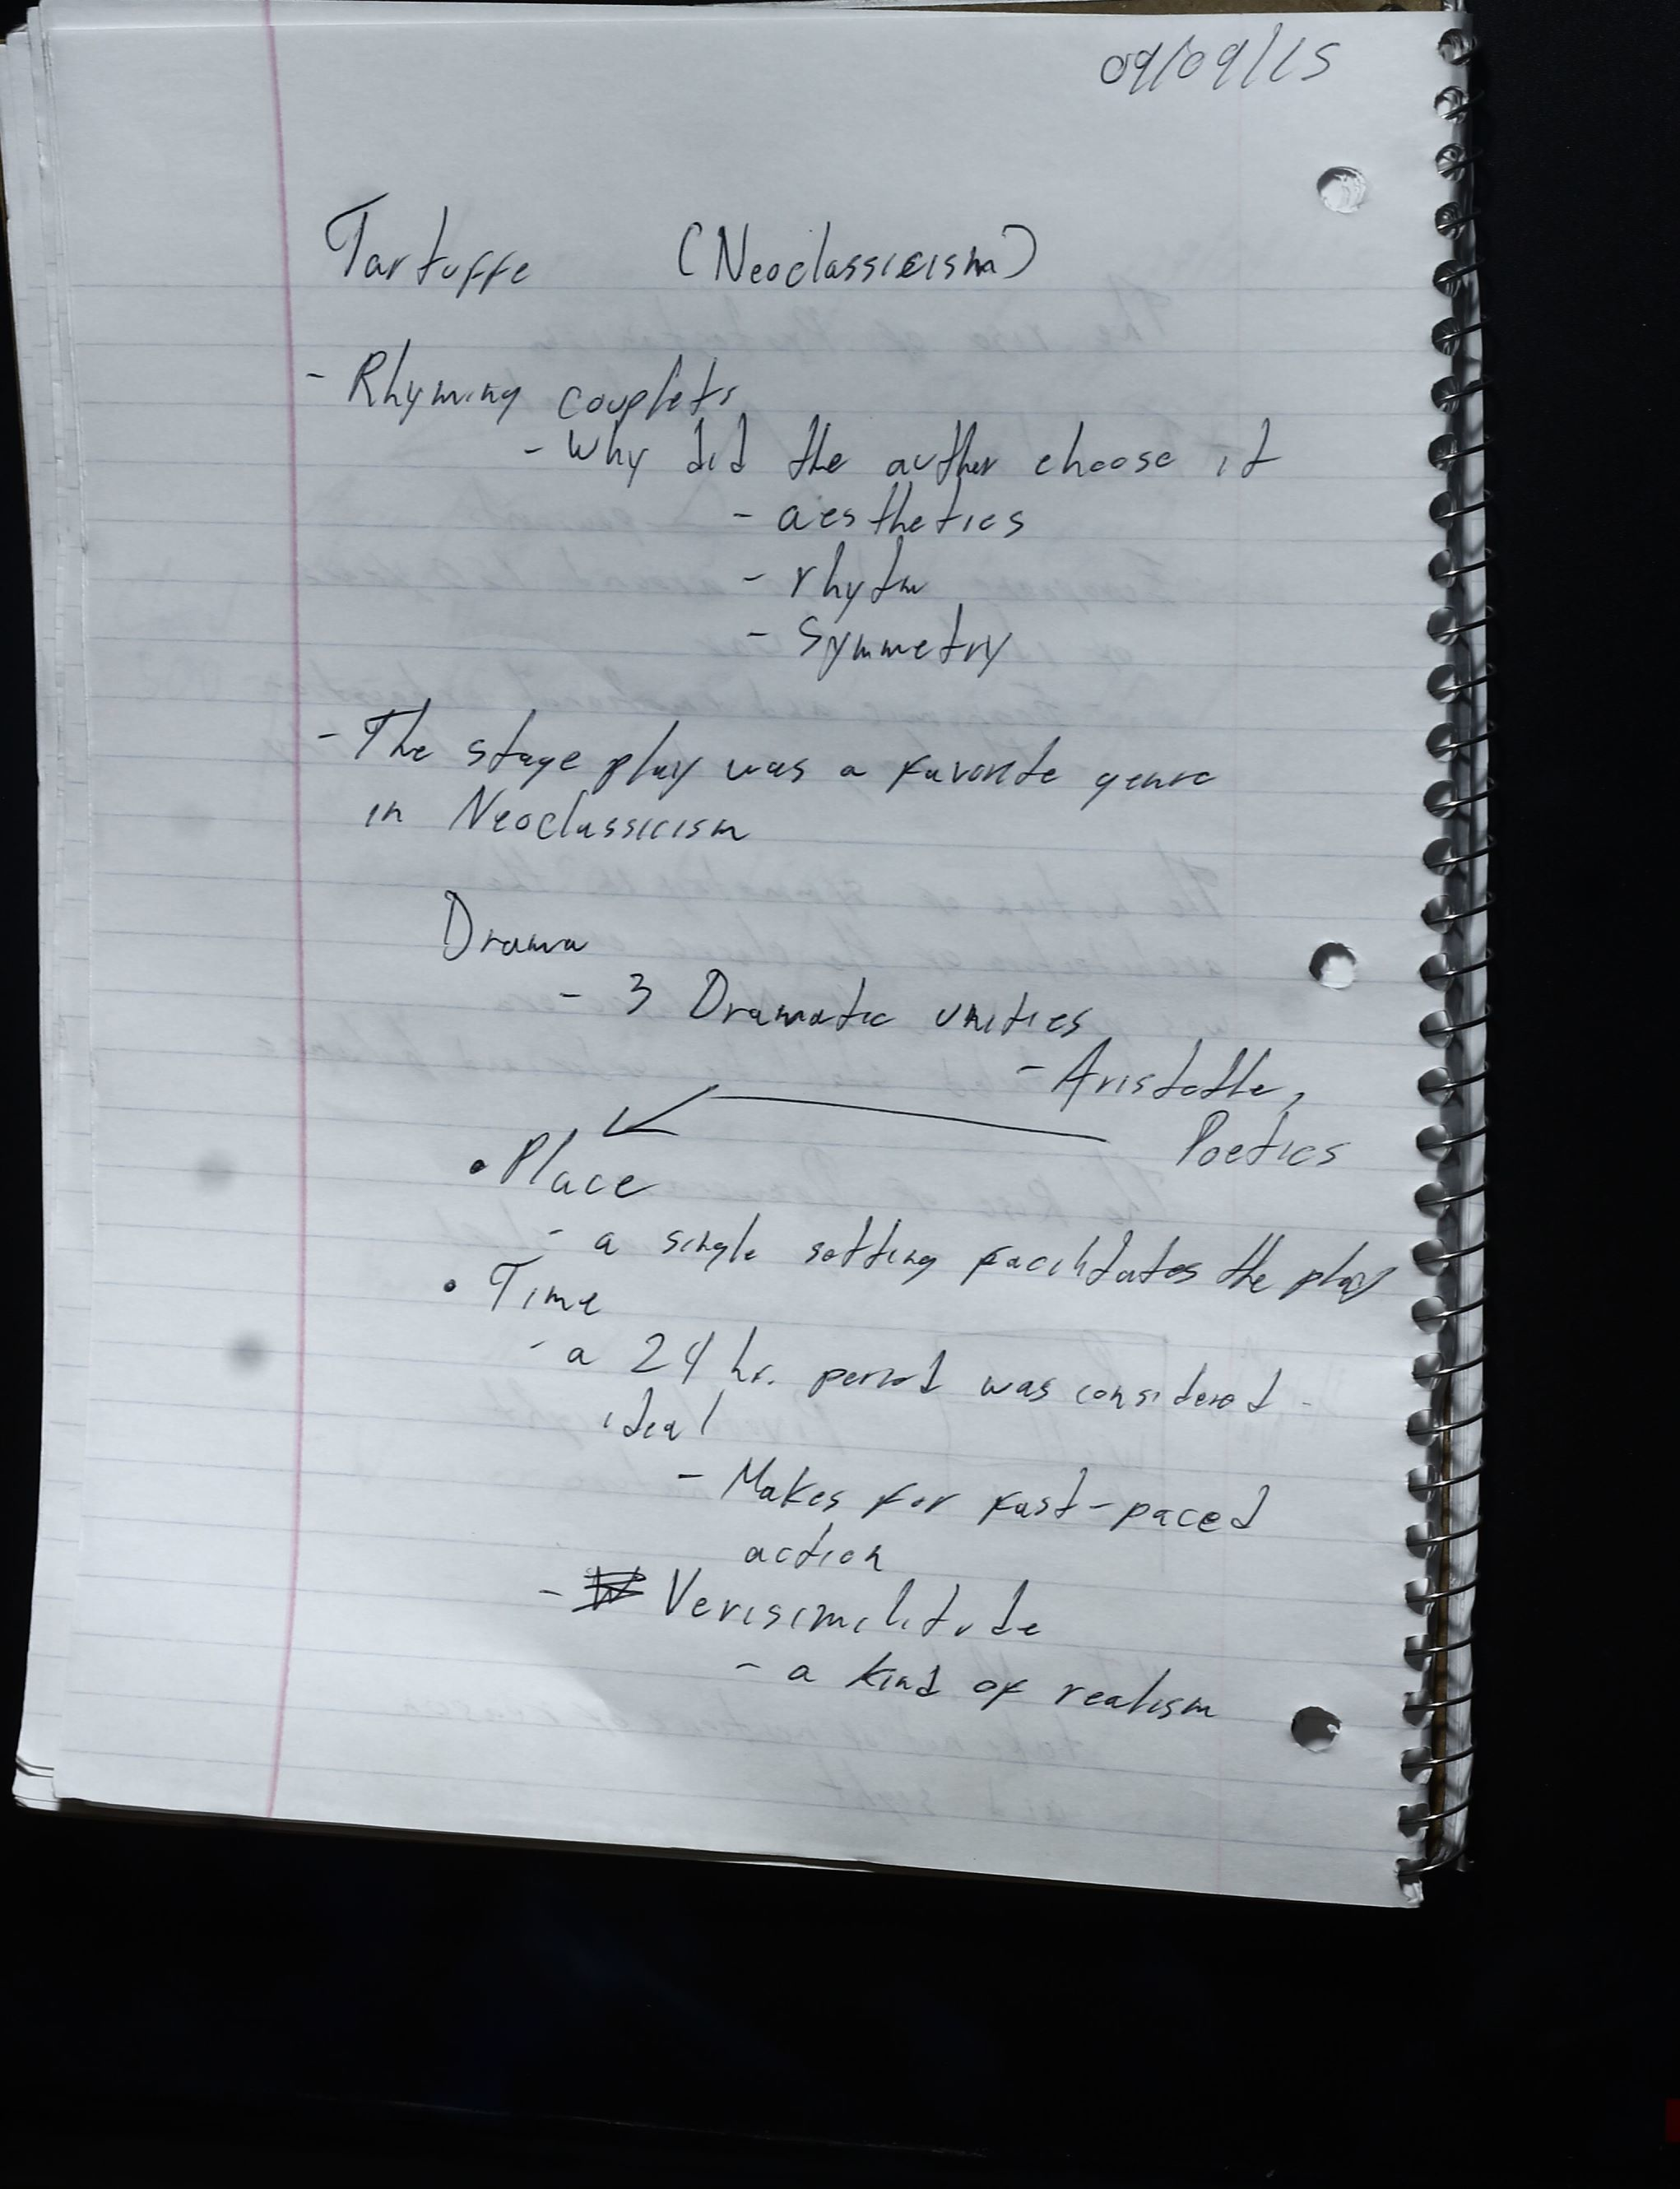 09/09/15
Tartuffe (Neoclassicism)
- Rhyming couplets
- Why did the author choose it
- aesthetics
- rhythm
- Symmetry
- The stage play was a favorite genre
in Neoclassicism
Drama
- 3 Dramatic unities
- Aristotle,
Poetics
• Place
- a single setting facilitates the play
• Time
- a 24 hr. period was considered
ideal
- Makes for fast-paced
action
- Verisimilitude
- a kind of realism